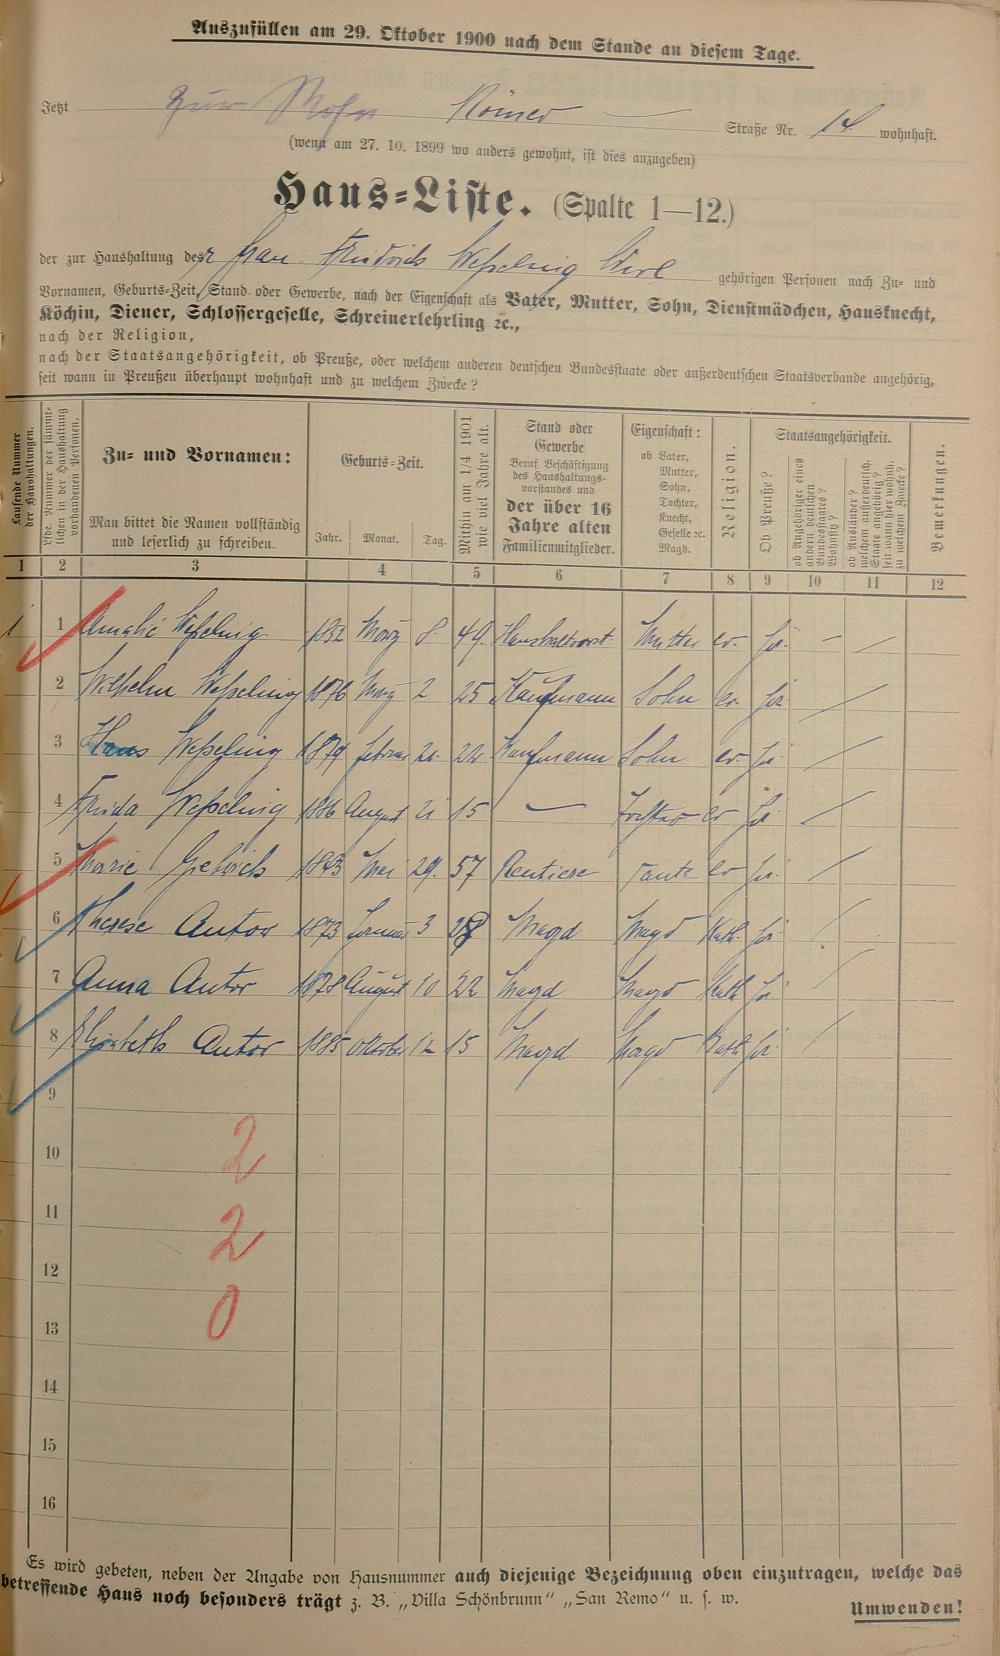 Auszufüllen am 29. Oktober 1900 nach dem Stande an diesem Tage.
Jetzt Zur Römer Straße Nr. 14 wohnhaft.
(wenn am 27. 10. 1899 wo anders gewohnt, ist dies anzugeben)
Haus-Liste. (Spalte 1—12.)
der zur Haushaltung der Frau Friedrich Weßeling Wwe gehörigen Personen nach Zu- und
Vornamen, Geburts-Zeit, Stand oder Gewerbe, nach der Eigenschaft als Vater, Mutter, Sohn, Dienstmädchen, Hausknecht,
Köchin, Diener, Schlossergeselle, Schreinerlehrling ꝛc.,
nach der Religion,
nach der Staatsangehörigkeit, ob Preuße, oder welchem anderen deutschen Bundesstaate oder außerdeutschen Staatsverbande angehörig,
seit wann in Preußen überhaupt wohnhaft und zu welchem Zwecke?
Laufende Nummer der Haushaltungen.
Lfde. Nummer der sämmtlichen in der Haushaltung vorhandenen Personen.
Zu- und Vornamen:
Man bittet die Namen vollständig und leserlich zu schreiben.
Geburts-Zeit.
Jahr. Monat. Tag.
Mithin am 1/4 1901 wie viel Jahre alt.
Stand oder Gewerbe
Beruf Beschäftigung des Haushaltungs-vorstandes und
der über 16 Jahre alten Familienmitglieder.
Eigenschaft:
ob Vater, Mutter, Sohn, Tochter, Knecht, Geselle ꝛc. Magd.
Religion.
Staatsangehörigkeit.
Ob Preuße?
ob Angehöriger eines andern deutschen Bundesstaates? Wohnsitz?
ob Ausländer? welchem außerdeutsch. Staate angehörig? seit wann hier wohnh. zu welchem Zwecke?
Bemerkungen.
1 2 3 4 5 6 7 8 9 10 11 12
1 1 Amalie Weßeling 1852 März 8. 49. Haushaltvorst Mutter ev. Ja. – —
2 Wilhelm Weßeling 1876 März 2 25 Kaufmann Sohn ev. Ja
3 Hans Weßeling 1879 Februar 22 Kaufmann Sohn ev. Ja
4 Frieda Weßeling 1886 August 15 — Tochter ev Ja
5 Marie 1843 Mai 29. 57 Rentiere Tante ev Ja.
6 Therese Antor 1873 Januar 3 28 Magd Magd Kath. Ja
7 Anna Antor 1878 August 10 22 Magd Magd Kath Ja
8 Elisabeth Antor 1885 Oktober 12 15 Magd Magd Kath Ja
9
10
2
11
2
12
0
13
14
15
16
Es wird gebeten, neben der Angabe von Hausnummer auch diejenige Bezeichnung oben einzutragen, welche das
betreffende Haus noch besonders trägt z. B. „Villa Schönbrunn“ „San Remo“ u. s. w.
Umwenden!